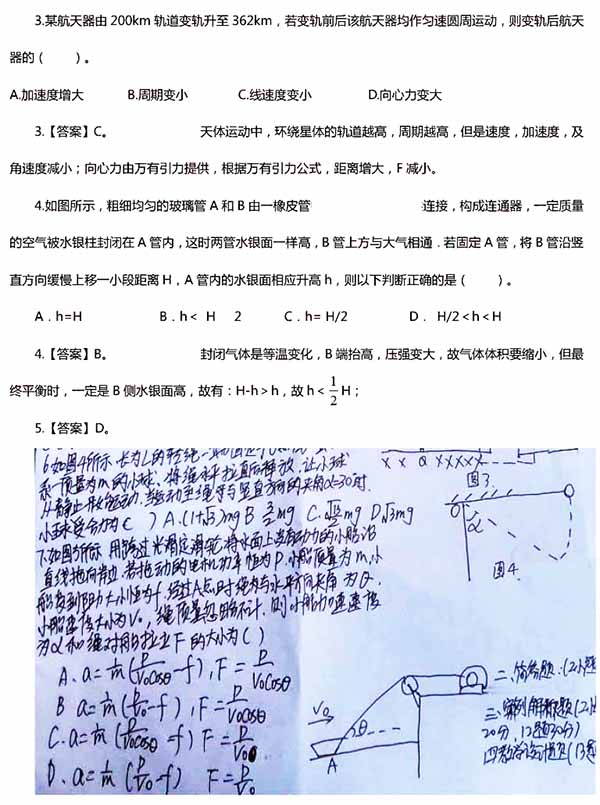 3.某航天器由 200km 轨道变轨升至 362km，若变轨前后该航天器均作匀速圆周运动，则变轨后航天
器的（　　）。
A.加速度增大　　B.周期变小　　C.线速度变小　　D.向心力变大
3.【答案】C。　　天体运动中，环绕星体的轨道越高，周期越高，但是速度，加速度，及
角速度减小；向心力由万有引力提供，根据万有引力公式，距离增大，F 减小。
4.如图所示，粗细均匀的玻璃管 A 和 B 由一橡皮管　　连接，构成连通器，一定质量
的空气被水银柱封闭在 A 管内，这时两管水银面一样高，B 管上方与大气相通．若固定 A 管，将 B 管沿竖
直方向缓慢上移一小段距离 H，A 管内的水银面相应升高 h，则以下判断正确的是（　　）。
A．h=H　　B．h< H 2　　C．h= H/2　　D． H/2<h<H
4.【答案】B。　　封闭气体是等温变化，B 端抬高，压强变大，故气体体积要缩小，但最
终平衡时，一定是 B 侧水银面高，故有：H-h＞h，故 h＜1/2 H；
5.【答案】D。
6.如图4所示 长为L的轻绳一
系一质量为m的小球，将绳水平拉直后释放，让小球
从静止开始运动，当运动至绳子与竖直方向的夹角α=30°时.
小球受合力为（　）A.(1+√3)mg B 3/2mg C. mg D√3mg
7.如图5所示 用跨过光滑定滑轮 将水面上 动力的小船沿
直线拖向岸边，若拖动的电机功率恒为P，小船质量为m，小
船受到阻力大小恒为f，经过A点时绳为与水平方向夹角为θ，
小船速度大小为V₀，绳质量忽略不计，则小船加速度
为α和绳对船拉力F的大小为（）
A、a=1/m(P/V₀cosθ-f)，F=P/V₀cosθ
B a=1/m(P/V₀-f)，F=P/V₀cosθ
C.a=1/m(P/V₀cosθ-f) F=P/V₀
D、a=1/m(P/V₀-f) F=P/V₀
X X a XXXXX
图3.
O
α
图4
V₀
θ
A
二、简答题.(2小题
三、 解释题(2小
20分，12题30分)
四